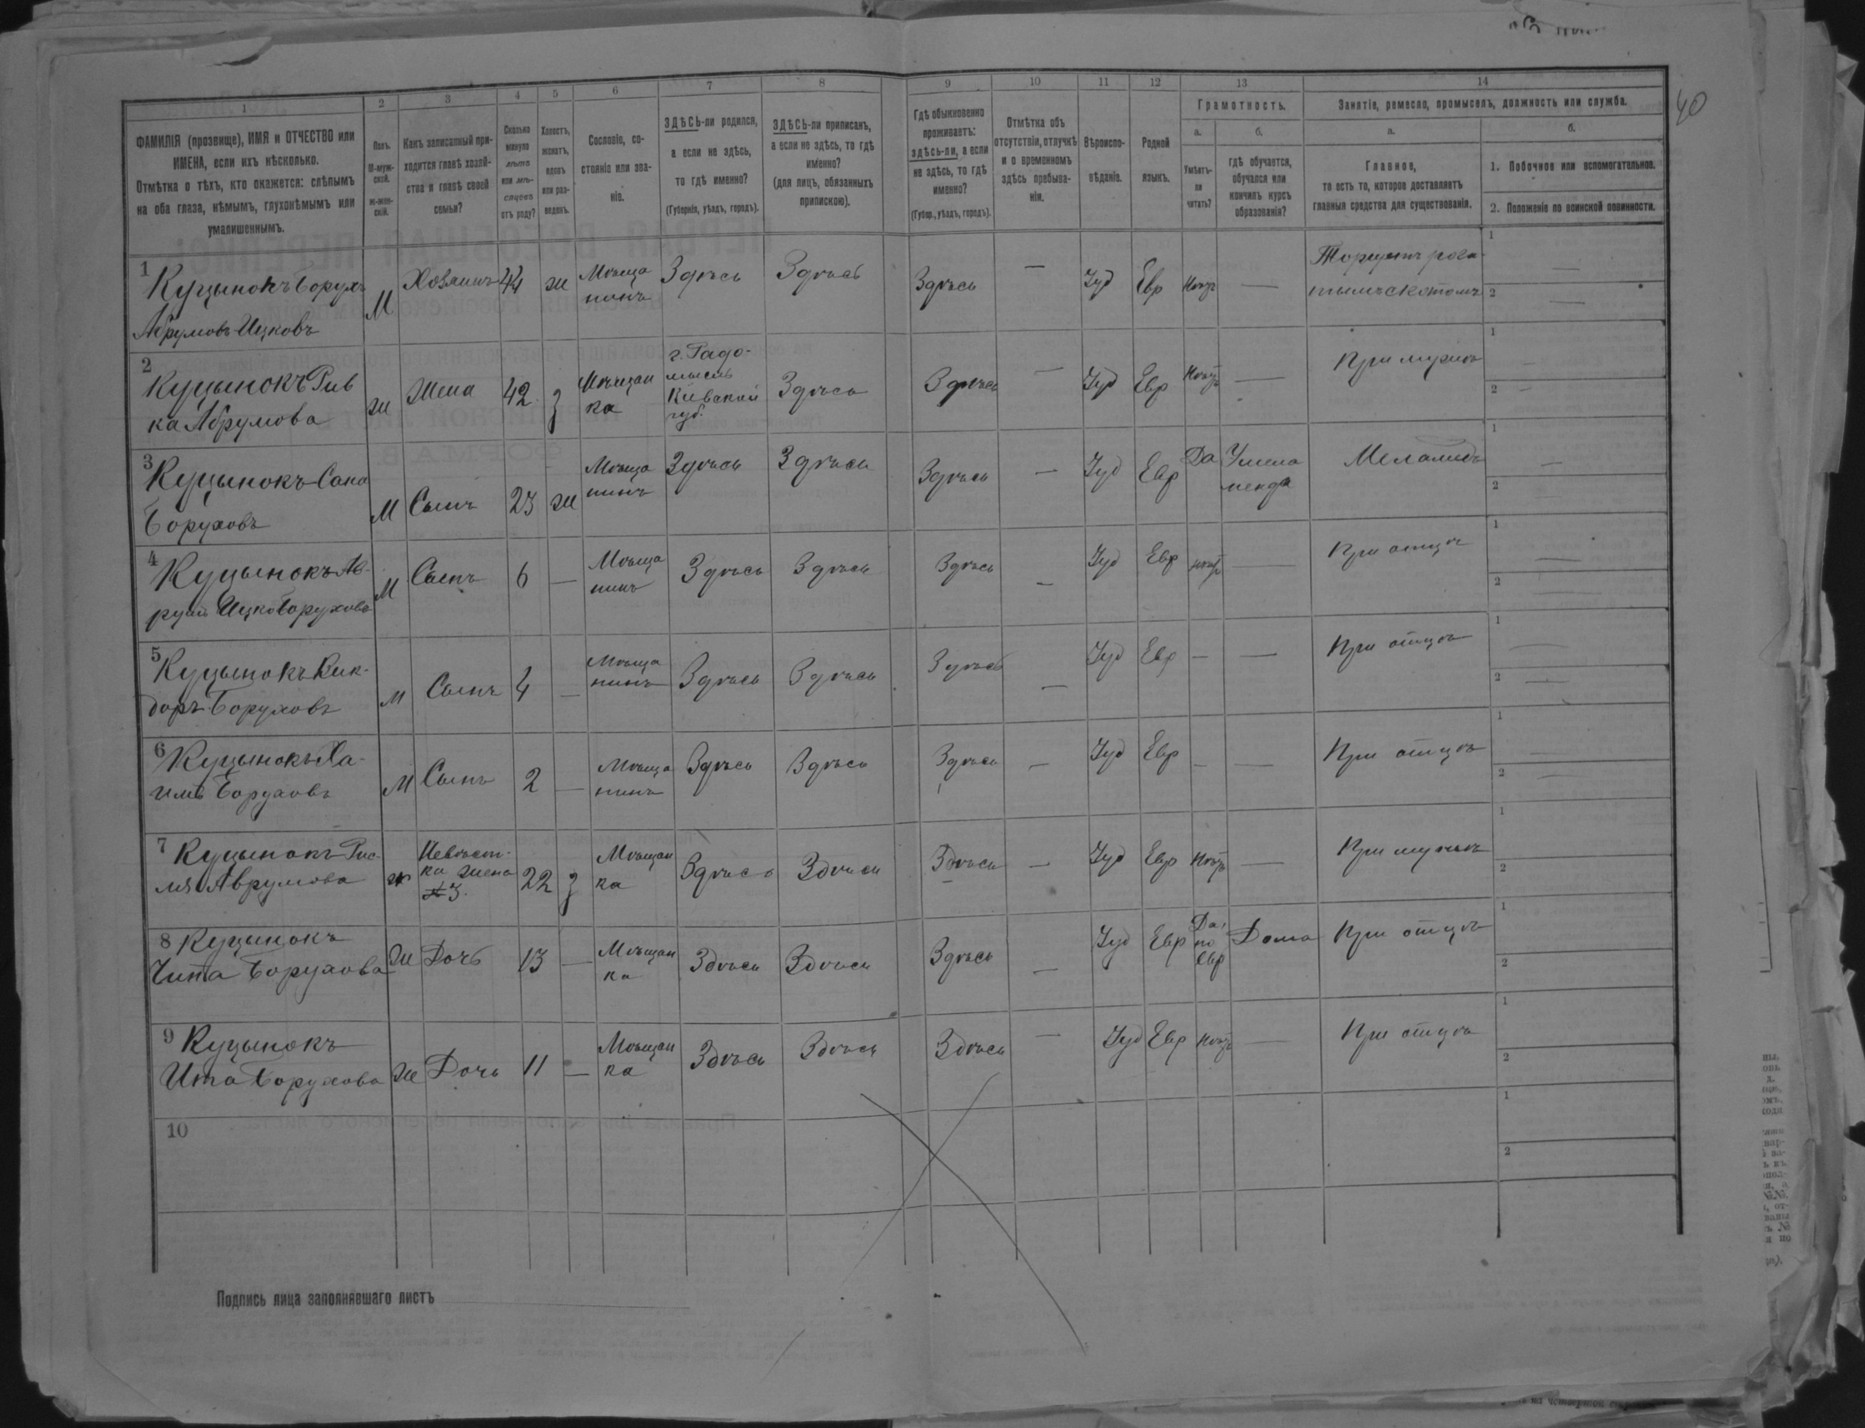 40
1 2 3 4 5 6 7 8 9 10 11 12 13 14
ФАМИЛІЯ (прозвище), ИМЯ и ОТЧЕСТВО или
ИМЕНА, если ихъ нѣсколько.
Отмѣтка о тѣхъ, кто окажется: слѣпымъ
на оба глаза, нѣмымъ, глухонѣмымъ или
умалишеннымъ.
Полъ.
М-муж-
ской.
Ж-жен-
скій.
Какъ записанный при-
ходится главѣ хозяй-
ства и главѣ своей
семьи?
Сколько
минуло
лѣтъ
или мѣ-
сяцевъ
отъ роду?
Холостъ,
женатъ,
вдовъ
или раз-
веденъ.
Сословіе, со-
стояніе или зва-
ніе.
ЗДѢСЬ-ли родился,
а если не здѣсь,
то гдѣ именно?
(Губернія, уѣздъ, городъ).
ЗДѢСЬ-ли приписанъ,
а если не здѣсь, то гдѣ
именно?
(для лицъ, обязанныхъ
припискою).
Гдѣ обыкновенно
проживаетъ:
здѣсь-ли, а если
не здѣсь, то гдѣ
именно?
(Губер., уѣздъ, городъ).
Отмѣтка объ
отсутствіи, отлучкѣ
и о временномъ
здѣсь пребыва-
ніи.
Вѣроиспо-
вѣданіе.
Родной
языкъ.
Грамотность.
а.
Умѣетъ-
ли
читать?
б.
гдѣ обучается,
обучался или
кончилъ курсъ
образованія?
Занятіе, ремесло, промыселъ, должность или служба.
а.
Главное,
то есть то, которое доставляетъ
главныя средства для существованія.
б.
1. Побочное или вспомогательное.
2. Положеніе по воинской повинности.
1 Куцынокъ Борухъ
Абрумовъ Ицковъ
М Хозяинъ 44 ж Мѣща
нинъ Здѣсь Здѣсь Здѣсь — Іуд Евр Нѣтъ — Торгуетъ рога-
тымъ скотомъ 1 — 2 —
2 Куцынокъ Рив
ка Абрумова
ж Жена 42 з Мѣщан
ка г. Радо-
мысль
Кіевской
губ. Здѣсь Здѣсь — Іуд Евр Нѣтъ — При мужѣ 1 — 2 —
3 Куцынокъ Сана
Боруховъ
М Сынъ 23 ж Мѣща
нинъ Здѣсь Здѣсь Здѣсь — Іуд Евр Да Меламедъ 1 — 2
4 Куцынокъ Ав-
рум Ицко Боруховъ
М Сынъ 6 — Мѣща
нинъ Здѣсь Здѣсь Здѣсь — Іуд Евр нѣтъ — При отцѣ 1 — 2 —
5 Куцынокъ Вик-
доръ Боруховъ
м Сынъ 4 — Мѣща
нинъ Здѣсь Здѣсь Здѣсь — Іуд Евр — — При отцѣ 1 — 2 —
6 Куцынокъ Ха-
имъ Боруховъ
М Сынъ 2 — Мѣща
нинъ Здѣсь Здѣсь Здѣсь — Іуд Евр — — При отцѣ 1 — 2 —
7 Куцынокъ
Аврумова
ж Невѣст-
ка жена
№ 3. 22 з Мѣщан
ка Здѣсь Здѣсь Здѣсь — Іуд Евр Нѣтъ — При мужѣ 1 2
8 Куцынокъ
Чита Борухова
Ж Дочь 13 — Мѣщан
ка Здѣсь Здѣсь Здѣсь — Іуд Евр Да,
по
евр Дома При отцѣ 1 2
9 Куцынокъ
Ита Борухова
Ж Дочь 11 — Мѣщан
ка Здѣсь Здѣсь Здѣсь — Іуд Евр Нѣтъ — При отцѣ 1 2
10 1 2
Подпись лица заполнявшаго листъ